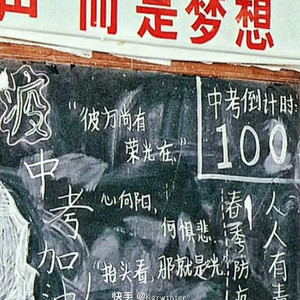 而是梦想
疫
中考加油
"彼方尚有
荣光在."
心向阳,
何惧悲
"抬头看,那就是光.
中考倒计时
100
春季防疫
人人有责
快手 @Karwinter